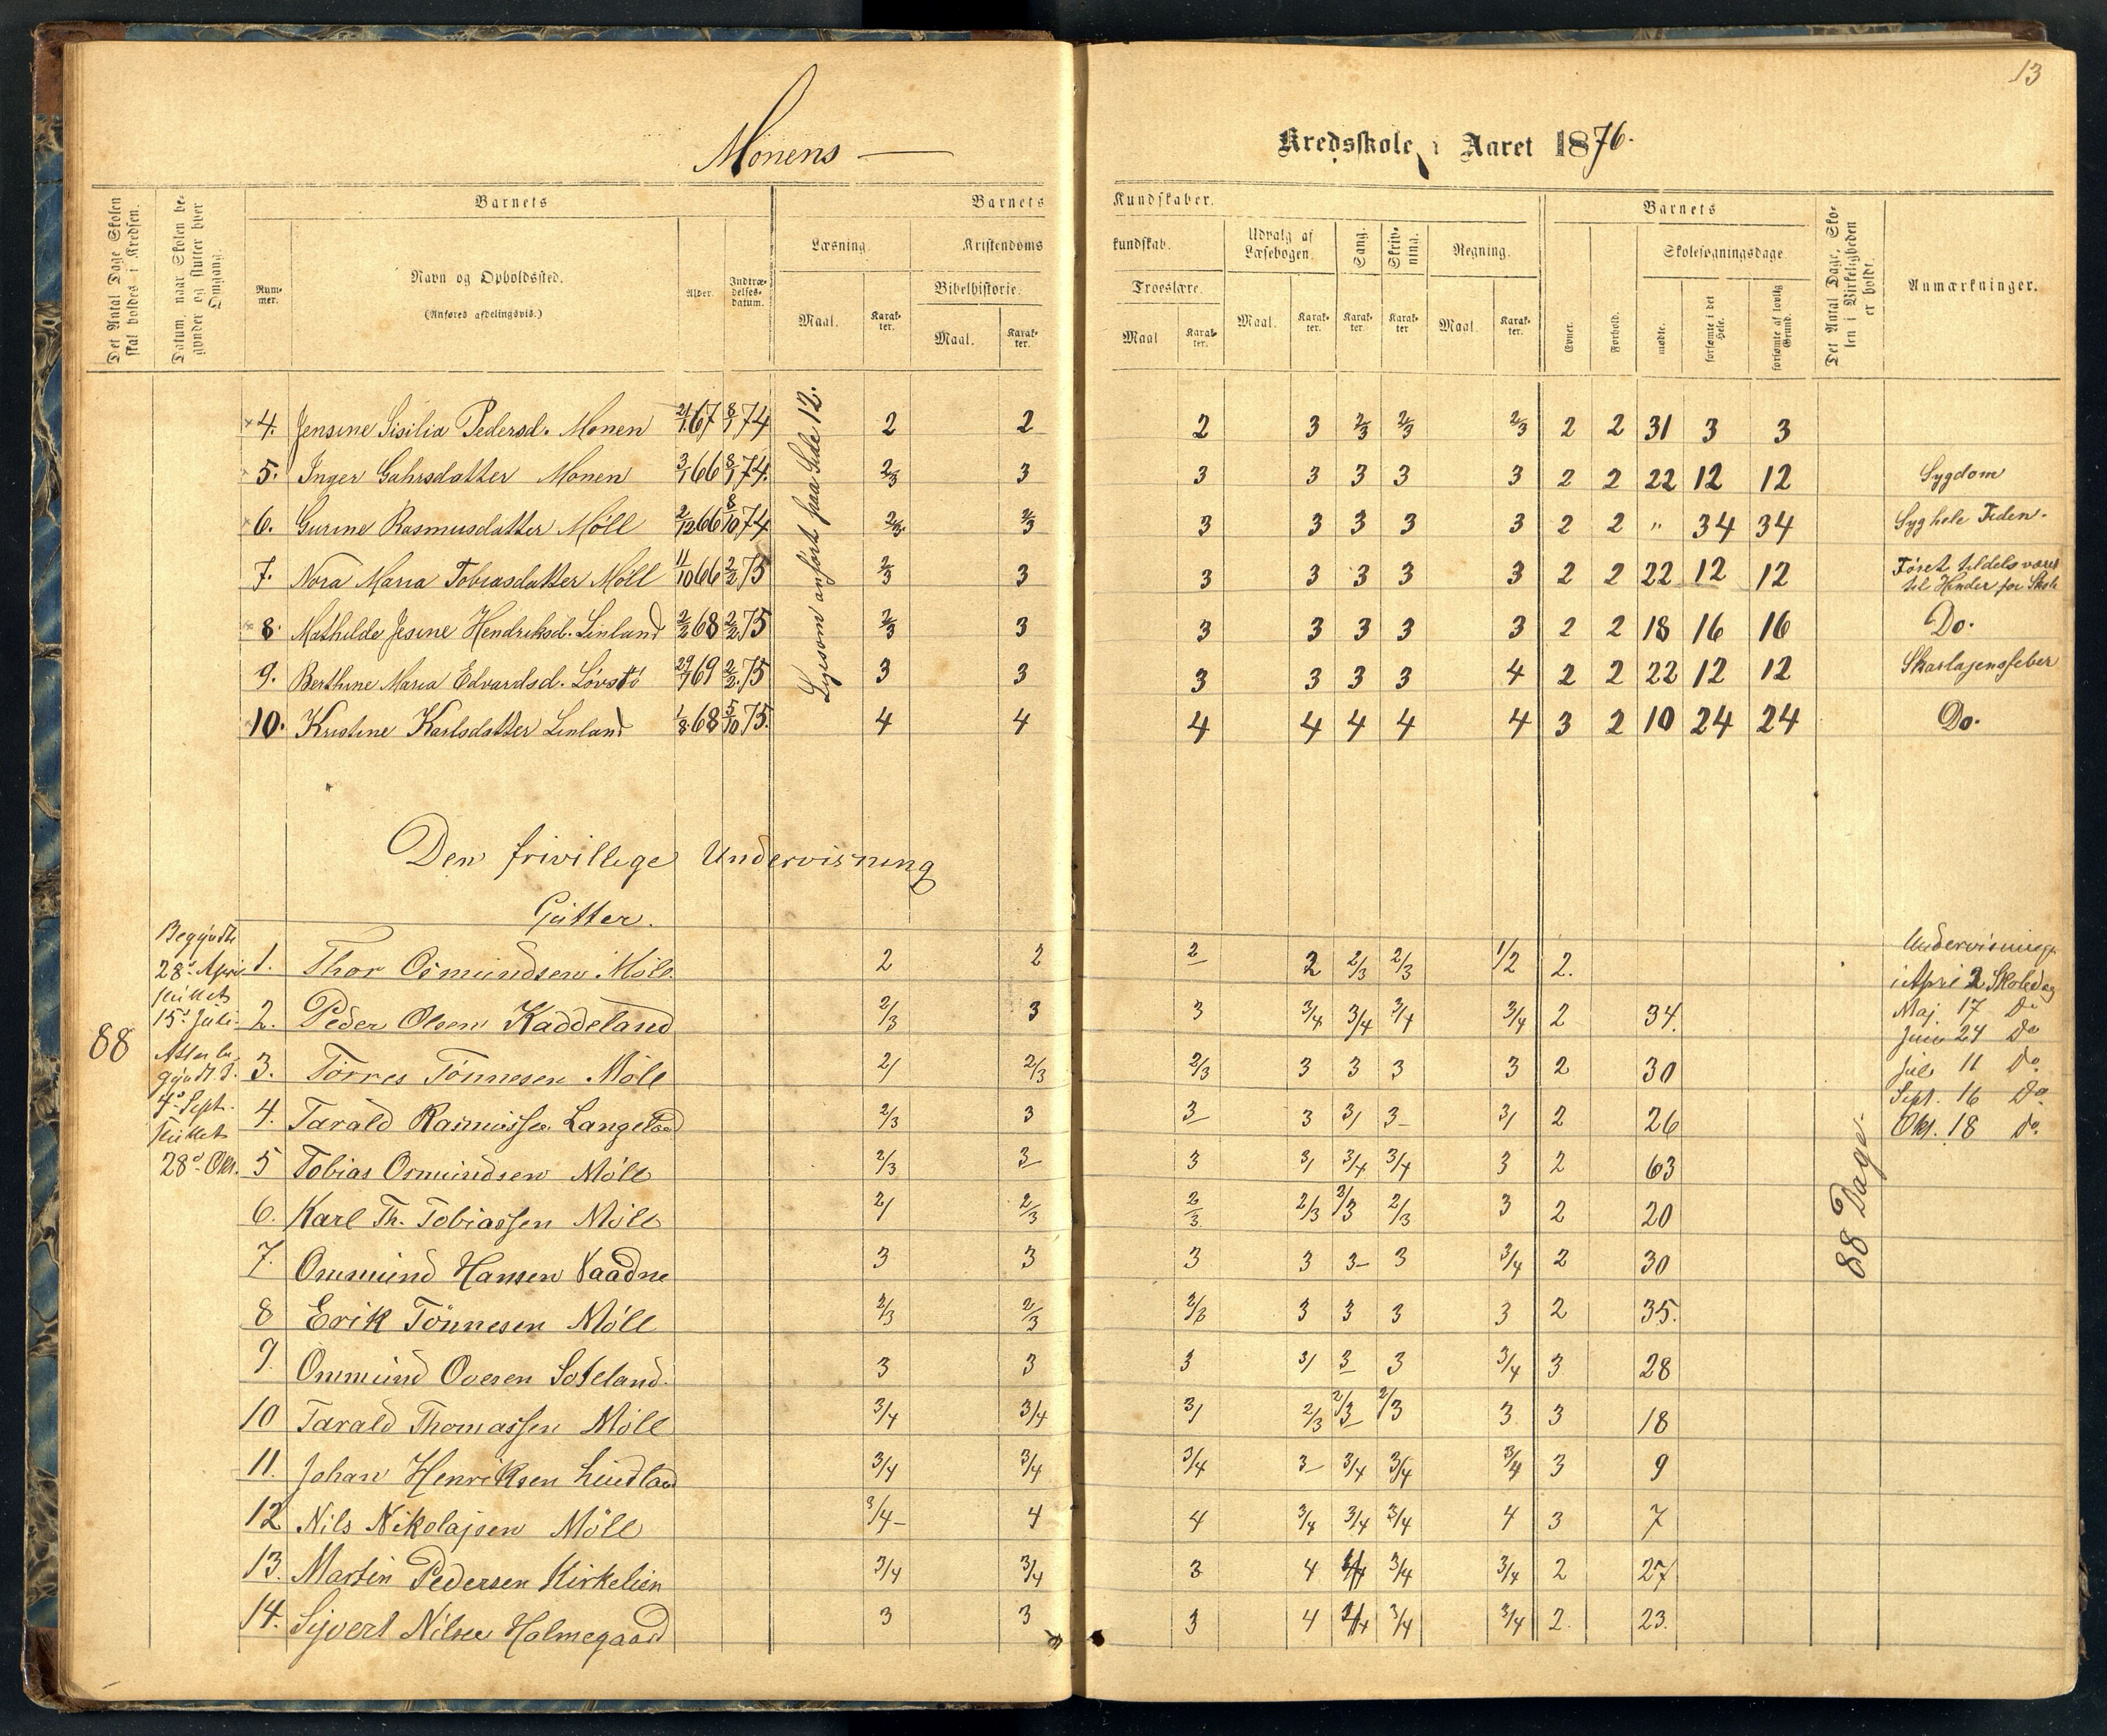 13
Monens —
Kredsskole i Aaret 1876.
Det Antal Dage Skolen skal holdes i Kredsen.
Datum, naar Skolen begynder og slutter hver Omgang.
Barnets
Nummer.
Navn og Opholdssted.
(Anføres afdelingsvis.)
Alder.
Indtrædelsesdatum.
Barnets
Kundskaber.
Læsning.
Maal.
Karakter.
Kristendoms
kundskab.
Bibelhistorie.
Maal.
Karakter.
Troeslære.
Maal
Karakter.
Udvalg af Læsebogen.
Maal.
Karakter.
Sang.
Karakter.
Skrivning.
Karakter
Regning.
Maal.
Karakter.
Barnets
Evner.
Forhold.
Skolesøgningsdage
mødte.
forsømte i det Hele.
forsømte af lovlig Grund.
Det Antal Dage, Skolen i Virkeligheden er holdt.
Anmærkninger.
Ligesom anført paa Side 12.
4. Jensine Sisilia Pedersd. Monen 21/1 67 8/1 74 2 2 2 3 2/3 2/3 2/3 2 2 31 3 3
5. Inger Gahrsdatter Monen 3/1 66 8/1 74. 2/3 3 3 3 3 3 3 2 2 22 12 12 Sygdom
6. Gurine Rasmusdatter Möll 2/12 66 8/10 74 2/3 2/3 3 3 3 3 3 2 2 " 34 34 Syg hele Tiden.
7. Nora Maria Tobiasdatter Möll 11/10 66 2/2 75 2/3 3 3 3 3 3 3 2 2 22 12 12 Føret tildels været til Hinder for Skole
8. Mathilde Jesine Hendriksd. Linland 2/2 68 2/2 75 2/3 3 3 3 3 3 3 2 2 18 16 16 Do.
9. Berthine Maria Edvardsd. Lövstö 29/7 69 2/2 75 3 3 3 3 3 3 4 2 2 22 12 12 Skarlagensfeber
10. Kristine Karlsdatter Linland 1/8 68 5/10 75. 4 4 4 4 4 4 4 3 2 10 24 24 Do.
Den frivillige Undervisning
Gutter.
88
Begyndte
28de April
sluttet
15de Juli.
Atter begyndt d.
4de Sept.
sluttet
28de Okt.
1. Thor Osmundsen Möll. 2 2 2 2 2/3 2/3 1/2 2.
2. Peder Olsen Kaddeland 2/3 3 3 3/4 3/4 3/4 3/4 2 34.
3. Törres Tönnesen Möll 2/ 2/3 2/3 3 3 3 3 2 30
4. Tarald Rasmussen Langeland 2/3 3 3- 3 3/ 3- 3/ 2 26
5 Tobias Osmundsen Möll 2/3 3- 3 3/ 3/4 3/4 3 2 63
6. Karl Th. Tobiassen Möll 2/ 2/3 2/3 2/3 2/3 2/3 3 2 20
7. Ommund Hansen Vaadne 3 3 3 3 3- 3 3/4 2 30
8 Erik Tönnesen Möll 2/3 2/3 2/3 3 3 3 3 2 35.
9. Ommund Ovesen Soteland. 3 3 3 3/ 3 3 3/4 3 28
10 Tarald Thomassen Möll 3/4 3/4 3/ 2/3 2/3 2/3 3 3 18
11. Johan Henriksen Lindland 3/4 3/4 3/4 3- 3/4 3/4 3/4 3 9
12 Nils Nikolajsen Möll 3/4- 4 4 3/4 3/4 3/4 4 3 7
13. Martin Pedersen Kirkelien 3/4 3/4 3 4 3/4 3/4 2 27
14. Sijvert Nilsen Holmegaard 3 3 3 4 3/4 3/4 2. 23.
88 Dage.
Undervisninge
i April 2 Skoledag
Maj 17 Do
Juni 24 Do
Juli 11 Do.
Sept. 16 Do.
Okt. 18 Do.